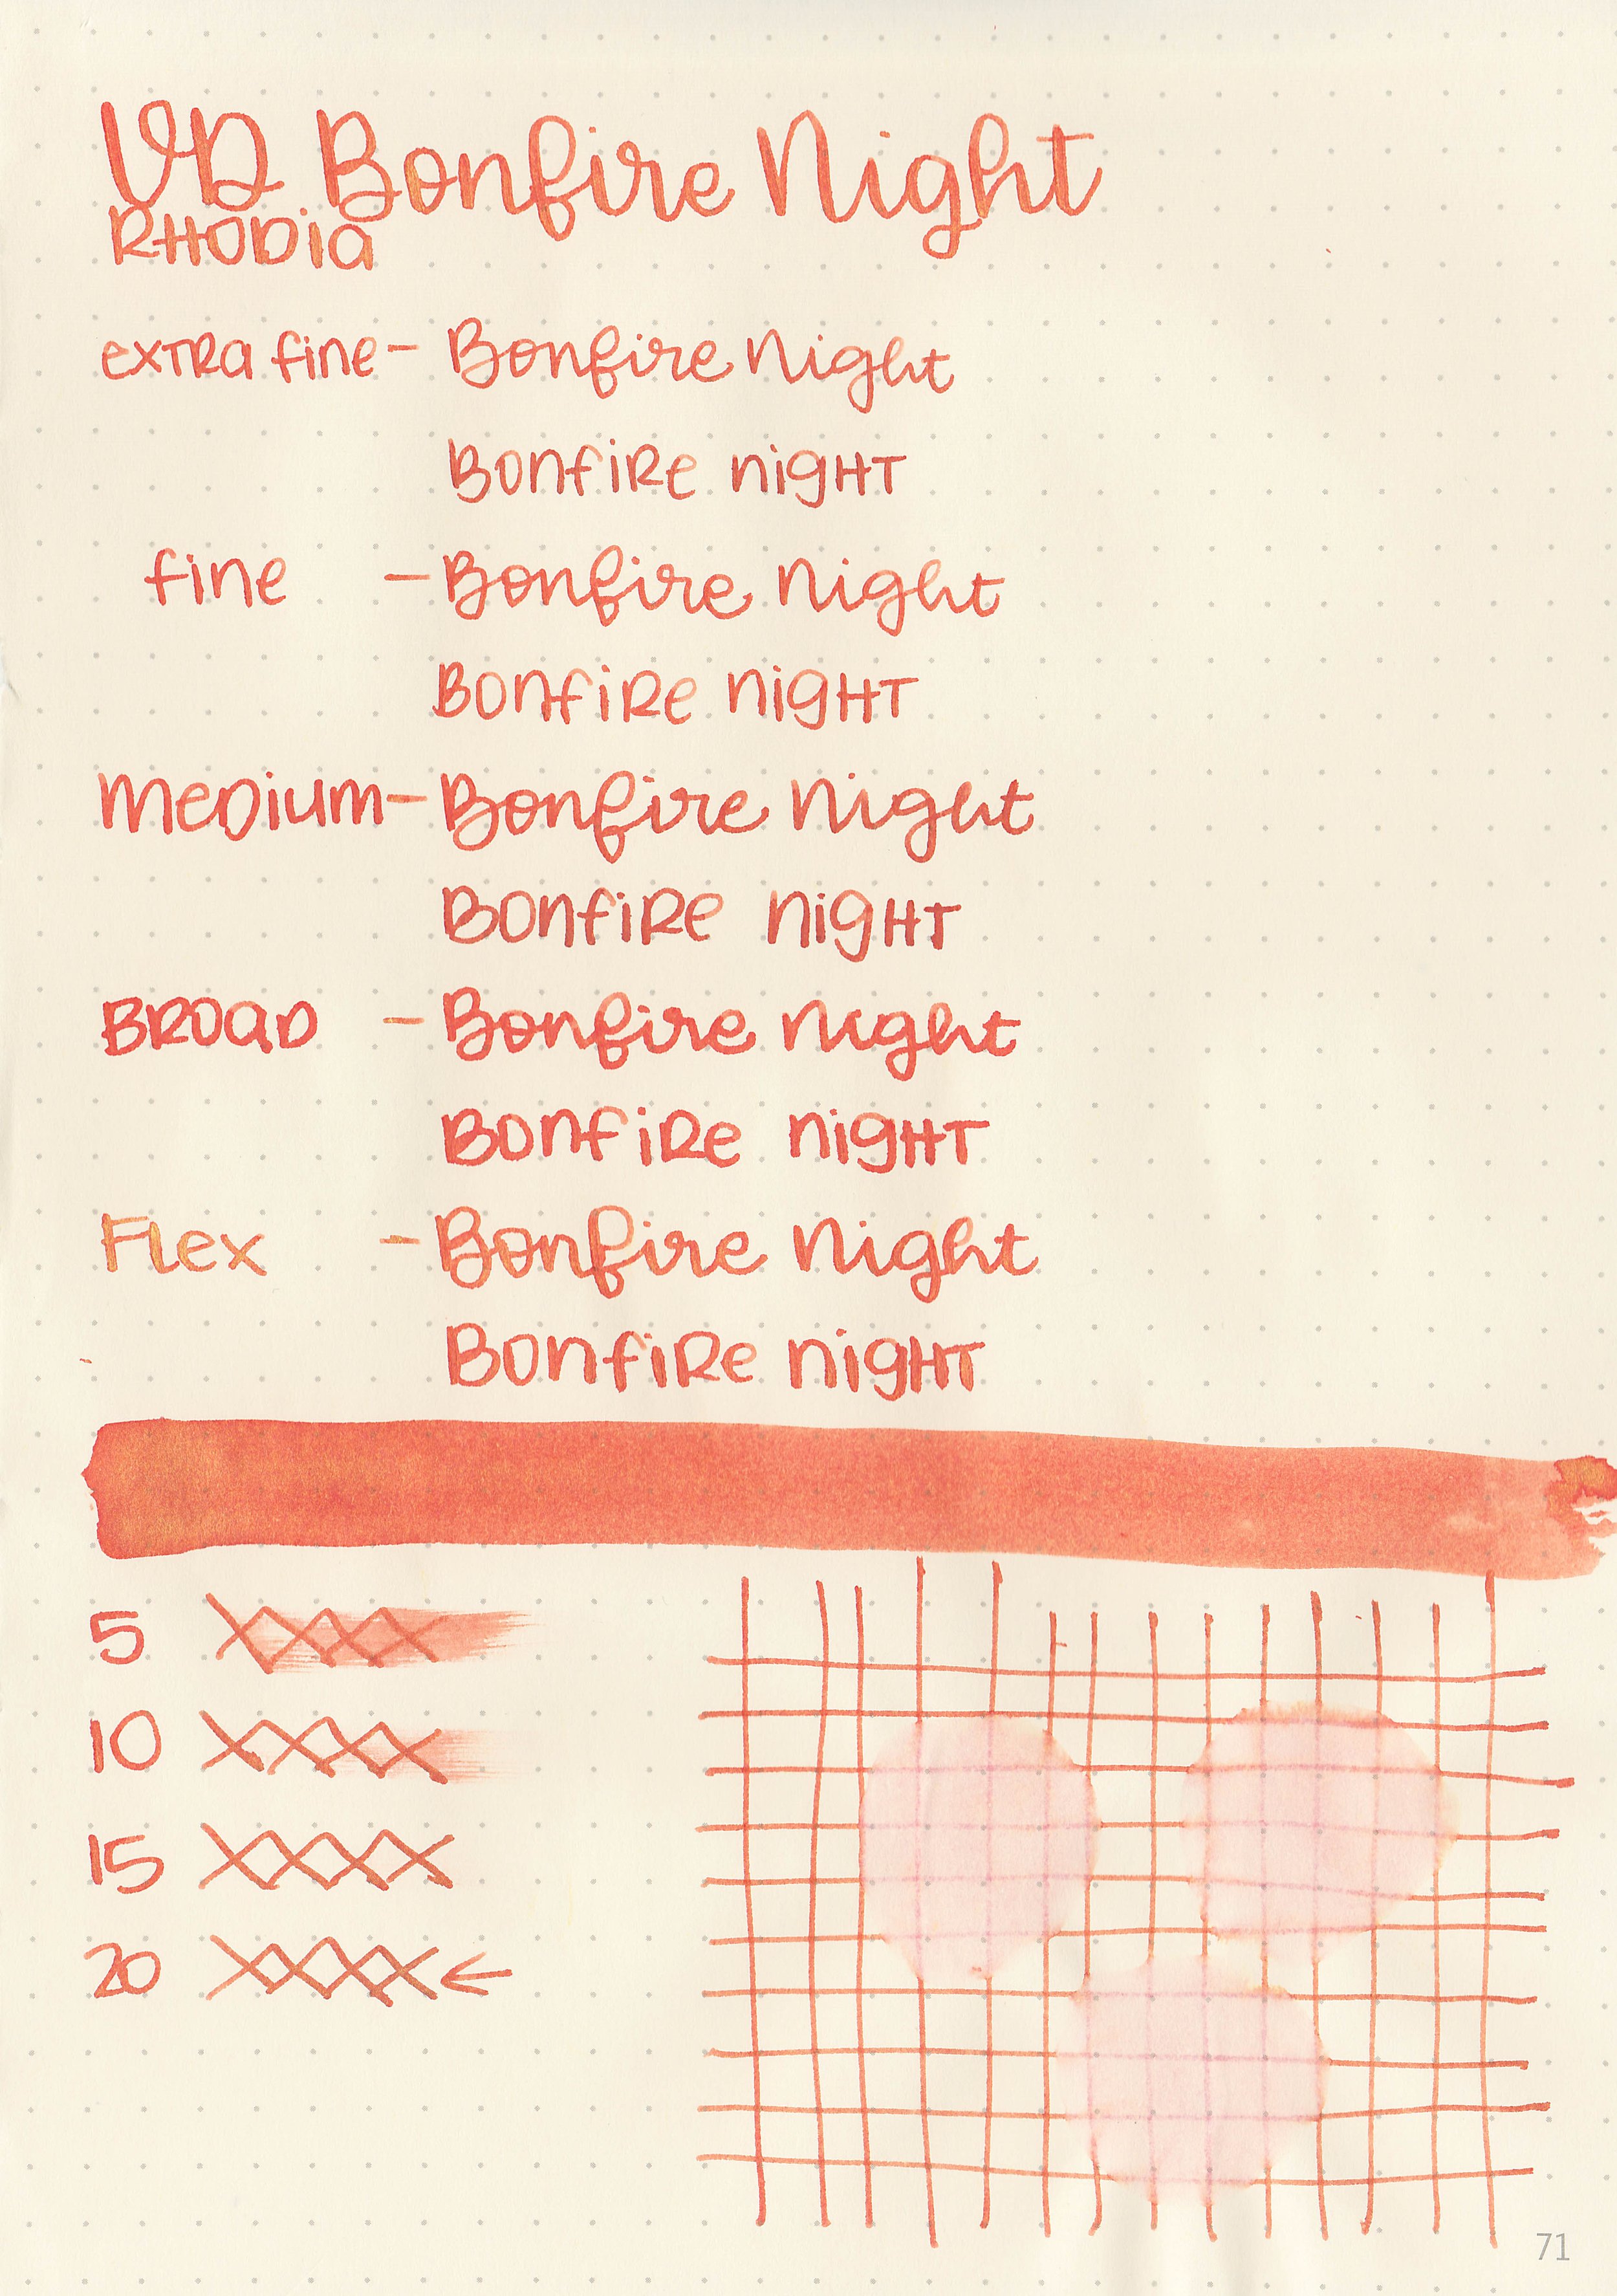 VD Bonfire Night
RHODia
exTRa fine - Bonfire Night
Bonfire nigHT
fine - Bonfire Night
Bonfire nigHT
MeDium - Bonfire Night
Bonfire nigHT
BROaD - Bonfire Night
Bonfire nigHT
Flex - Bonfire Night
Bonfire nigHT
5 XXXX
10 XXXX
15 XXXX
20 XXXX ←
71